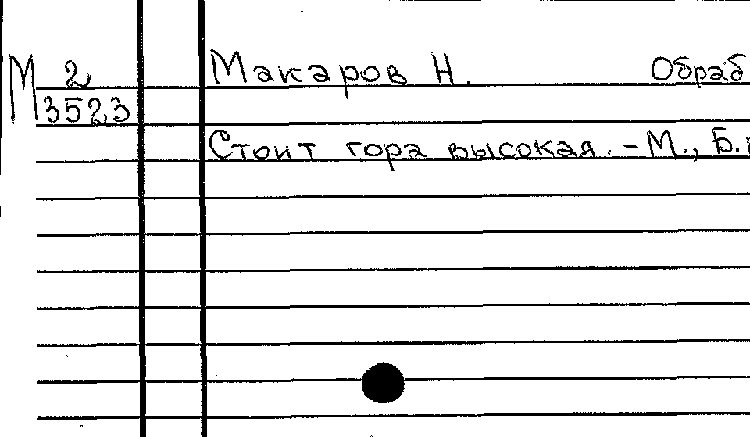 М 2 Макаров Н. Обраб
3523
Стоит гора высокая. - М., Б.